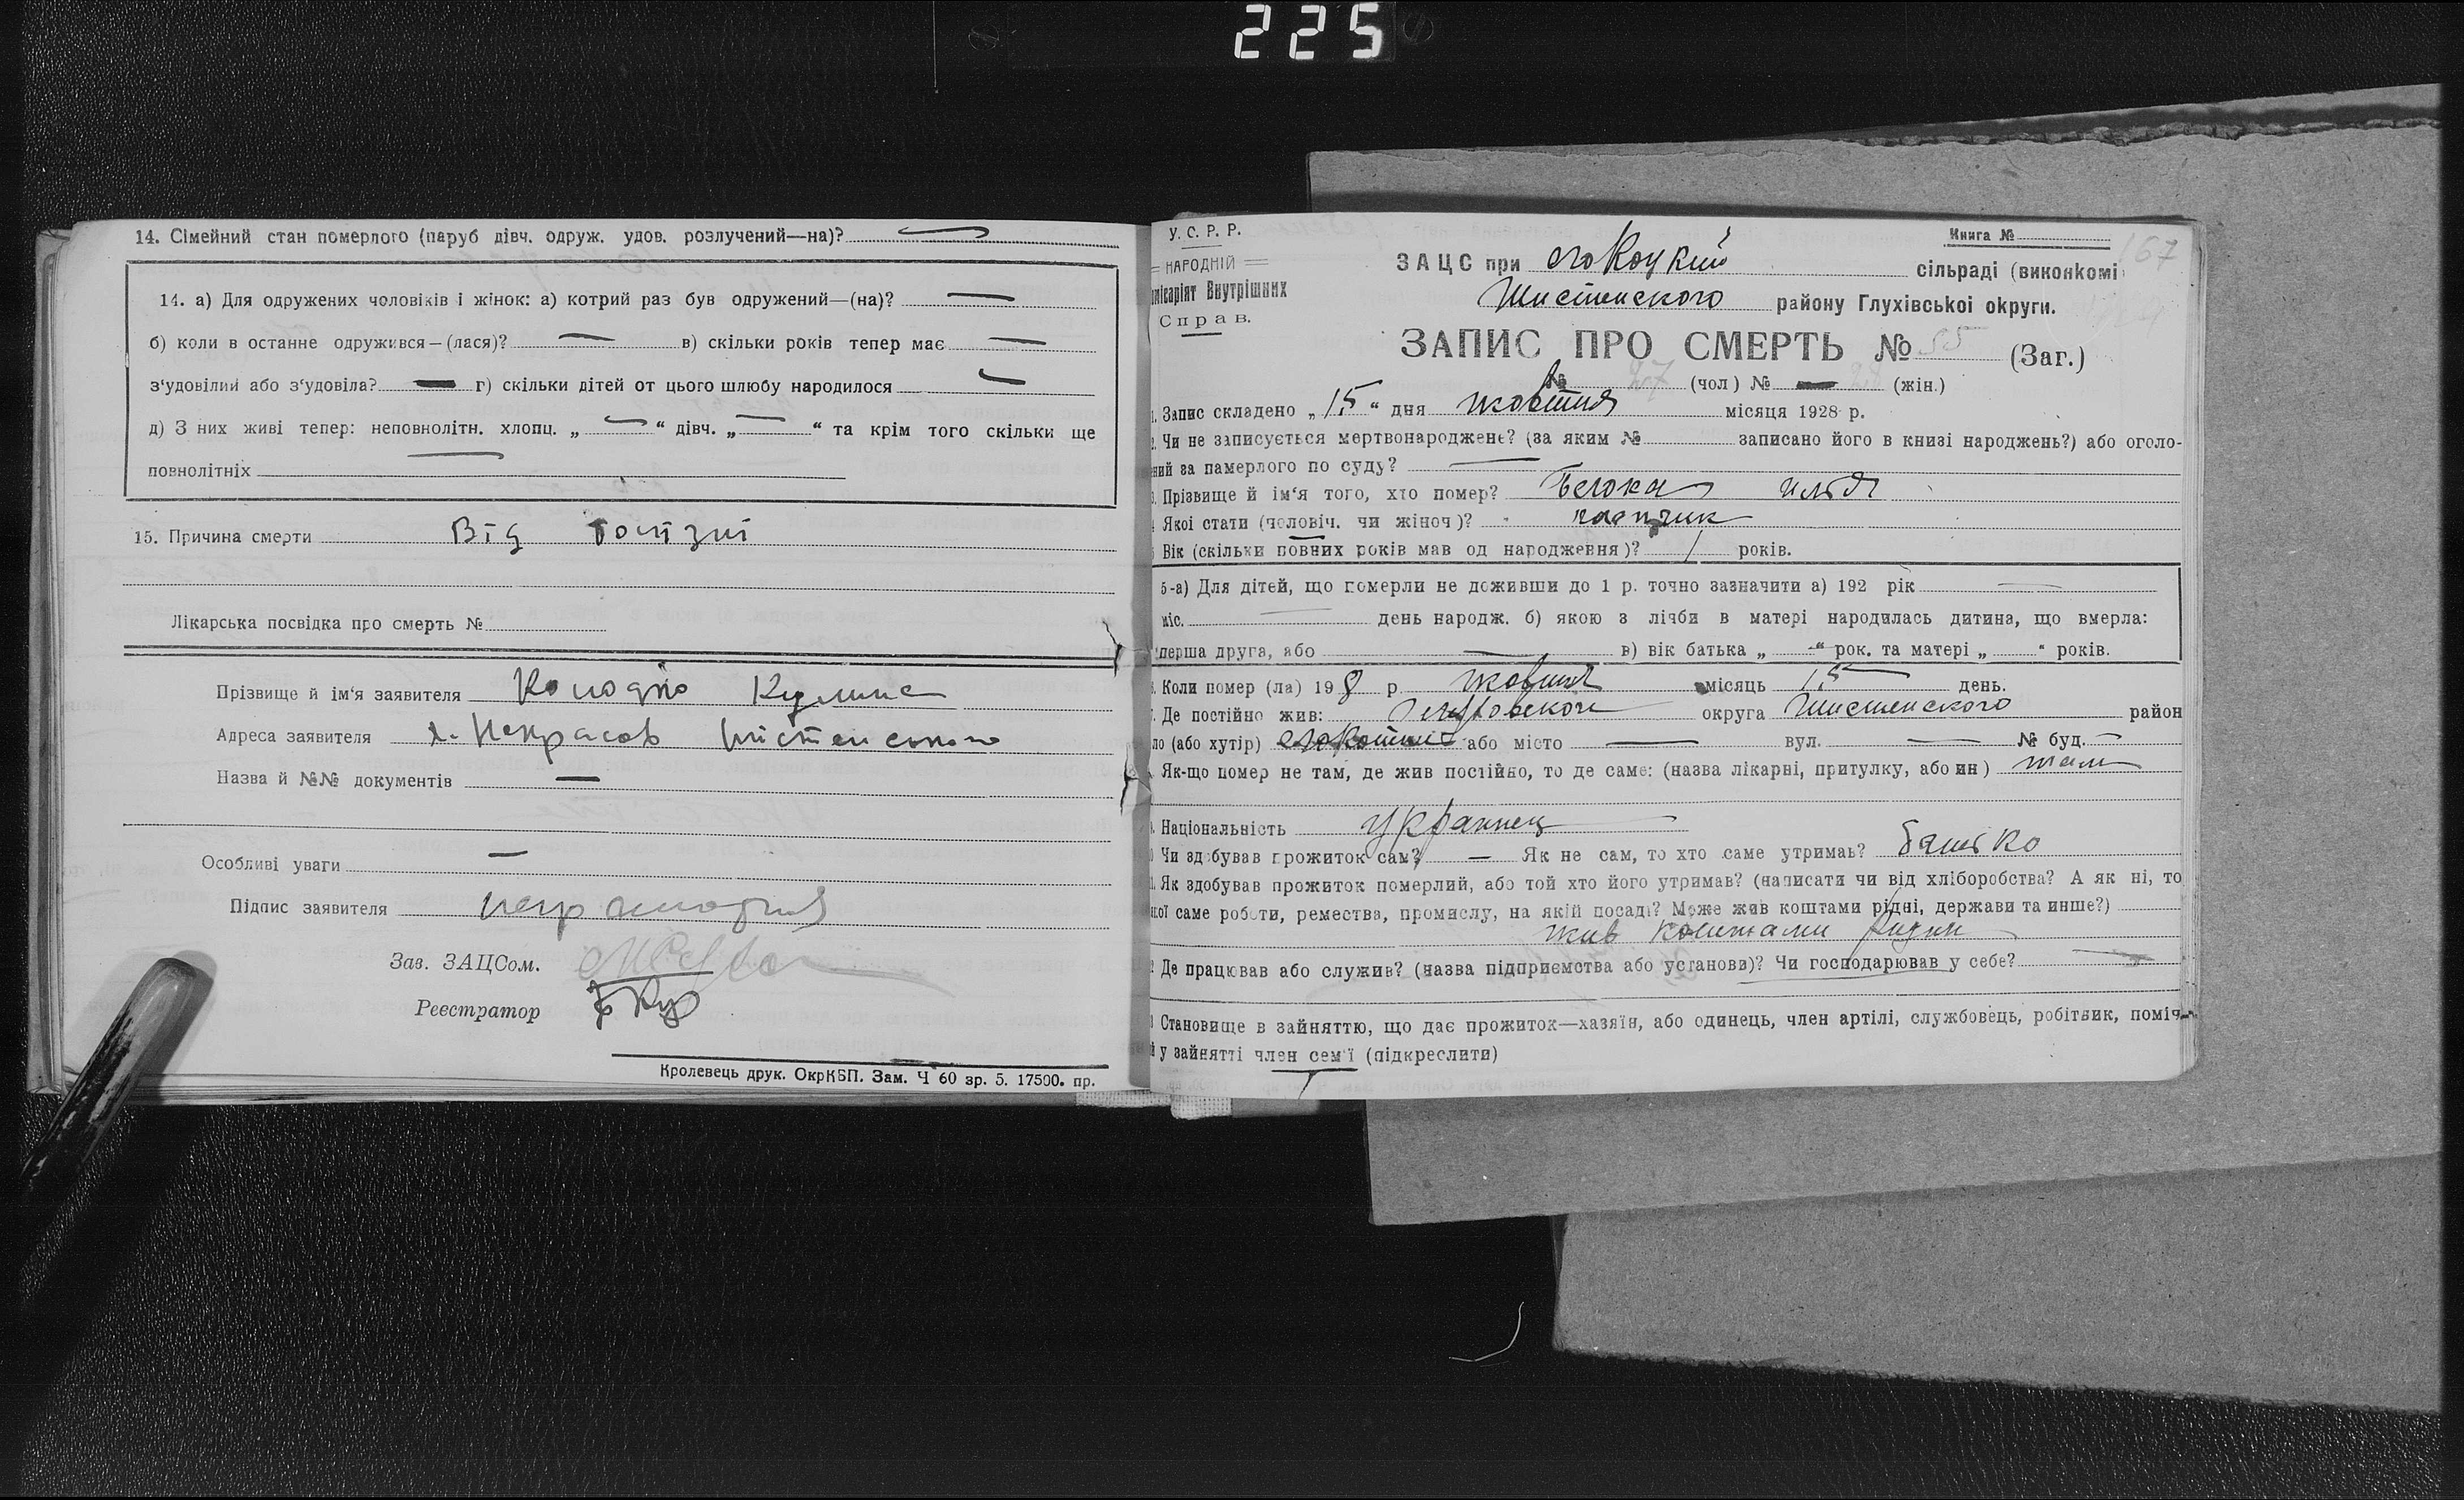 225
14. Сімейний стан померлого (паруб дівч. одруж. удов. розлучений—на)?
14. а) Для одружених чоловіків і жінок: а) котрий раз був одружений—(на)?
б) коли в останне одружився—(лася)? в) скільки років тепер має
з'удовілий або з'удовіла? г) скільки дітей от цього шлюбу народилося
д) З них живі тепер: неповнолітн. хлопц. „ “ дівч. „ “ та крім того скільки ще
повнолітніх
15. Причина смерти Від
Лікарська посвідка про смерть №
Прізвище й ім'я заявителя
Адреса заявителя х. Некрасов
Назва й №№ документів
Особливі уваги
Підпис заявителя
Зав. ЗАЦСом.
Реєстратор
Кролевець друк. ОкрКБП. Зам. Ч 60 зр. 5. 17500. пр.
У. С. Р. Р.
НАРОДНІЙ
місаріят Внутрішних
Справ.
Книга №
167
ЗАЦС при сільраді (виконкомі
району Глухівської округи.
ЗАПИС ПРО СМЕРТЬ № 55 (Заг.)
№ 27 (чол) № (жін.)
1. Запис складено „15“ дня жовтня місяця 1928 р.
2. Чи не записується мертвонароджене? (за яким № записано його в книзі народжень?) або оголо-
ний за памерлого по суду?
3. Прізвище й ім'я того, хто помер? Белока Илья
Якої стати (человіч. чи жіноч)?
Вік (скільки повних років мав од народження)? 1 років.
5-а) Для дітей, що померли не доживши до 1 р. точно зазначити а) 192 рік
міс. день народж. б) якою з лічби в матері народилась дитина, що вмерла:
перша друга, або в) вік батька „ “ рок. та матері „ “ років.
Коли помер (ла) 19 8 р жовтня місяць 15 день.
Де постійно жив: округа район
ло (або хутір) або місто вул. № буд.
Як-що помер не там, де жив постійно, то де саме: (назва лікарні, притулку, або ин) там
Національність Украинец
Чи здобував прожиток сам? — Як не сам, то хто саме утримав? батько
Як здобував прожиток померлий, або той хто його утримав? (написати чи від хліборобства? А як ні, то
якої саме роботи, ремества, промислу, на якій посаді? Може жив коштами рідні, держави та инше?)
жив коштами
Де працював або служив? (назва підприємства або установи)? Чи господарював у себе?
Становище в зайняттю, що дає прожиток—хазяїн, або одинець, член артілі, службовець, робітник, поміч-
й у зайнятті член сем'ї (підкреслити)